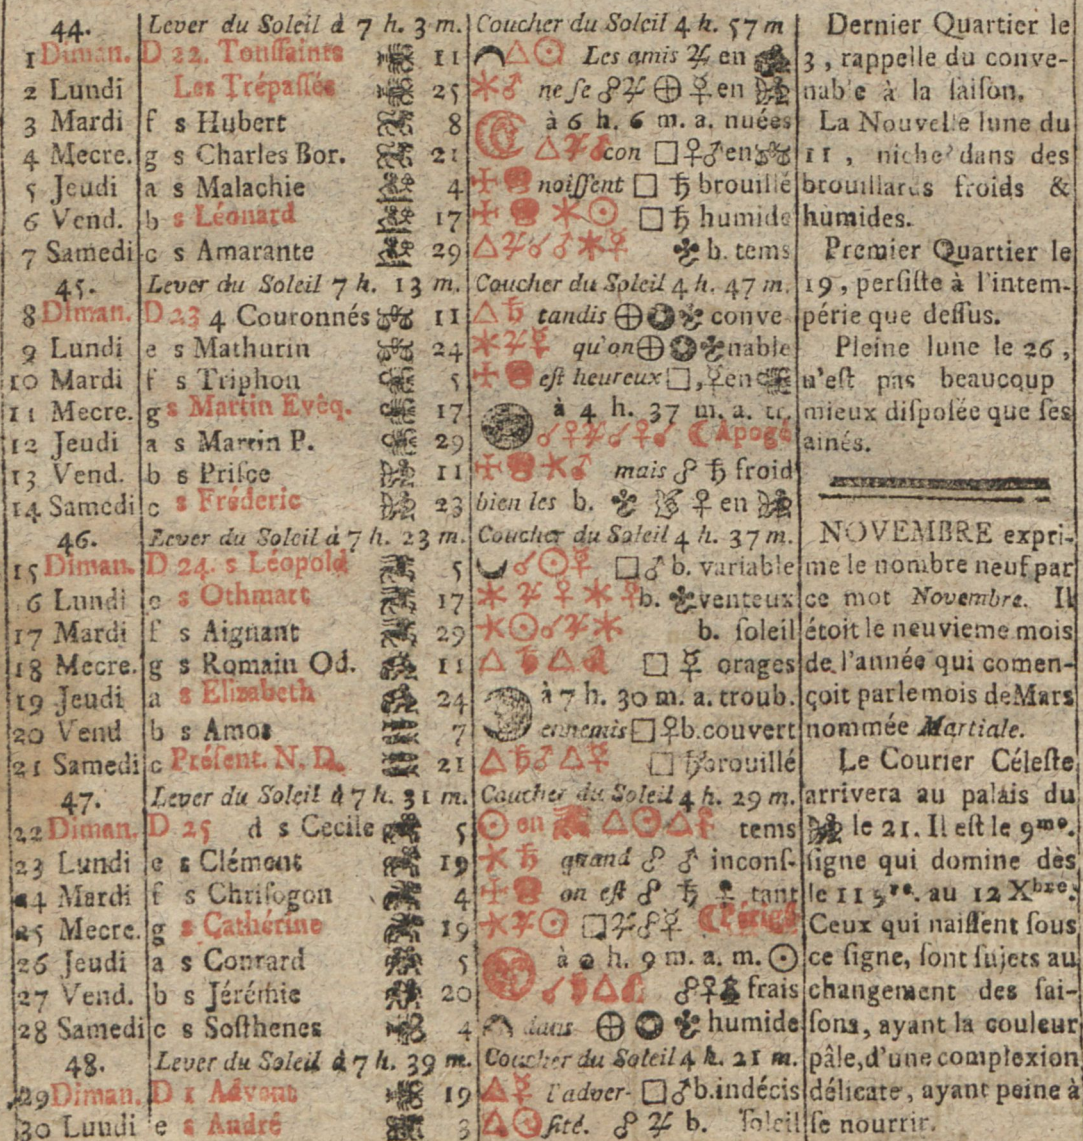 44. Lever du Soleil à 7 h. 3 m. Coucher du Soleil 4 h. 57 m
1 Diman. D 22. Touſſaints 11 Les amis ♃ en
2 Lundi Les Trépaſſés 25 ne ſe ☍ ♃ ⊕ ☿ en
3 Mardi f s Hubert 8 à 6 h. 6 m. a. nuées
4 Mecre. g s Charles Bor. 21 con □ ♀ ♂ en
5 Jeudi a s Malachie 4 noiſſent □ ♄ brouillé
6 Vend. b s Léonard 17 □ ♄ humide
7 Samedi c s Amarante 29 b. tems
45. Lever du Soleil 7 h. 13 m. Coucher du Soleil 4 h. 47 m.
8 Diman. D 23 4 Couronnés 11 △ ♄ tandis ⊕ conve
9 Lundi e s Mathurin 24 qu'on ⊕ nable
10 Mardi f s Triphon 5 eſt heureux □, ☿ en
11 Mecre. g s Martin Evêq. 17 à 4 h. 37 m. a.
12 Jeudi a s Martin P. 29 ☾ Apogé
13 Vend. b s Priſce 11 mais ☍ ♄ froid
14 Samedi c s Fréderic 23 bien les b. ♀ en
46. Lever du Soleil à 7 h. 23 m. Coucher du Soleil 4 h. 37 m.
15 Diman. D 24. s Léopold 5 ☌ ☉ ☿ □ ♂ b. variable
6 Lundi e s Othmart 17 b. venteux
17 Mardi f s Aignant 29 b. ſoleil
18 Mecre. g s Romain Od. 11 □ ☿ orages
19 Jeudi a s Elizabeth 24 à 7 h. 30 m. a. troub.
20 Vend b s Amos 7 ennemis □ ♀ b. couvert
21 Samedi c Préſent. N. D. 21 □ ♄ brouillé
47. Lever du Soleil à 7 h. 31 m. Coucher du Soleil 4 h. 29 m.
22 Diman. D 25 d s Cecile 5 ☉ en tems
23 Lundi e s Clément 19 quand ☍ ♂ inconſ-
24 Mardi f s Chriſogon 4 on eſt ☍ ♄ tant
25 Mecre. g s Cathérine 19 □ ♃ ☍ ☿ ☾ Périgé
26 Jeudi a s Conrard 5 à 2 h. 9 m. a. m. ☉
27 Vend. b s Jérémie 20 frais
28 Samedi c s Soſthenes 4 dans ⊕ humide
48. Lever du Soleil à 7 h. 39 m. Coucher du Soleil 4 h. 21 m.
29 Diman. D 1 Advent 19 △ ☿ l'adver- □ ♂ b. indécis
30 Lundi e s André 3 △ ☉ ſité. ☍ ♃ b. ſoleil
Dernier Quartier le
3, rappelle du conve-
nable à la ſaiſon.
La Nouvelle lune du
11, niche dans des
brouillards froids &
humides.
Premier Quartier le
19, perſiſte à l'intem-
périe que deſſus.
Pleine lune le 26,
n'eſt pas beaucoup
mieux diſpoſée que ſes
ainés.
NOVEMBRE expri-
me le nombre neuf par
ce mot Novembre. Il
étoit le neuvieme mois
de l'année qui comen-
çoit par le mois de Mars
nommée Martiale.
Le Courier Céleſte
arrivera au palais du
le 21. Il eſt le 9me.
ſigne qui domine dès
le 11 9re. au 12 Xbre.
Ceux qui naiſſent ſous
ce ſigne, ſont ſujets au
changement des ſai-
ſons, ayant la couleur
pâle, d'une complexion
délicate, ayant peine à
ſe nourrir.